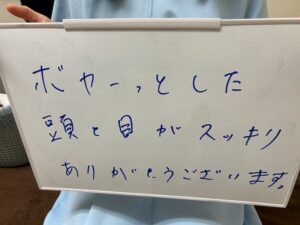 ボヤーっとした
頭と目がスッキリ
ありがとうございます。